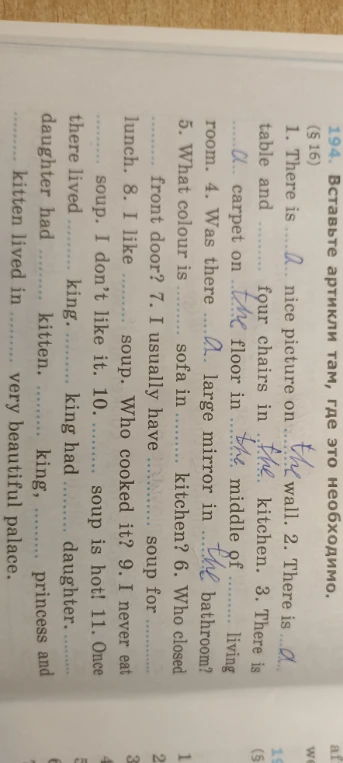 194. Вставьте артикли там, где это необходимо.
(§ 16)
1. There is ....a.. nice picture on ....the wall. 2. There is ...a..
table and ......... four chairs in the. kitchen. 3. There is
.....a carpet on ..the floor in ..the middle of ......... living
room. 4. Was there ....a.. large mirror in ...the bathroom?
5. What colour is ......... sofa in ......... kitchen? 6. Who closed
......... front door? 7. I usually have ............ soup for .........
lunch. 8. I like ......... soup. Who cooked it? 9. I never eat
......... soup. I don't like it. 10. ......... soup is hot! 11. Once
there lived ......... king. ......... king had ......... daughter. .........
daughter had ......... kitten. ......... king, ......... princess and
......... kitten lived in ......... very beautiful palace.
af
we
19
(§
1
2
3
4
5
6